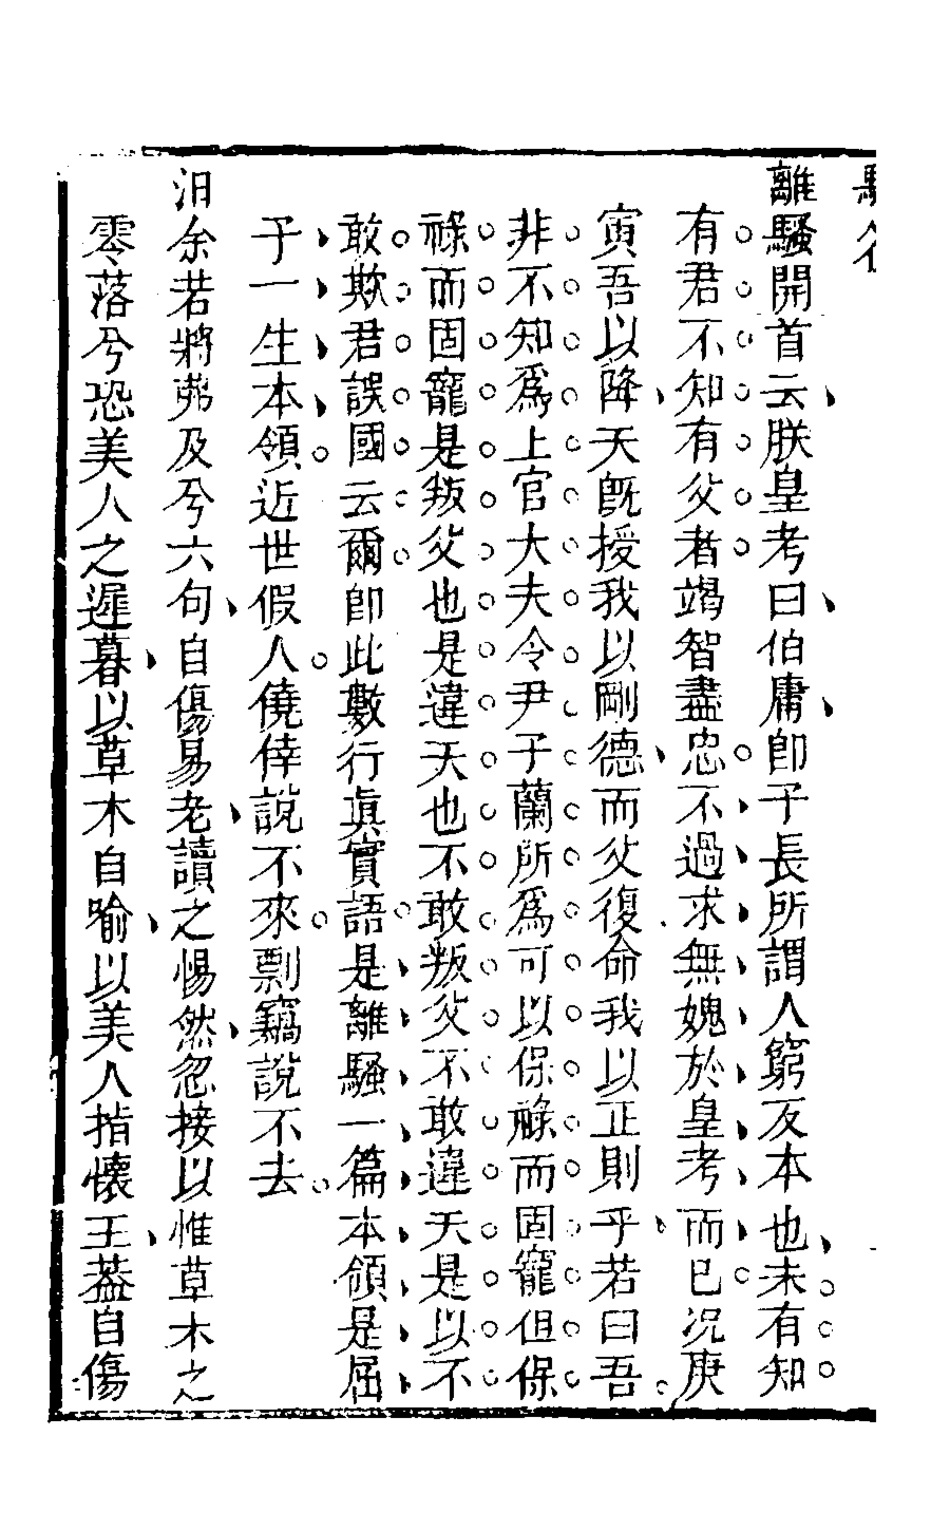 離騷開首云朕皇考曰伯庸卽子長所謂人窮反本也未有知
有君不知有父者竭智盡忠不過求無媿於皇考而已况庚
寅吾以降天旣授我以剛德而父復命我以正則乎若曰吾
非不知爲上官大夫令尹子蘭所爲可以保祿而固寵但保
祿而固寵是叛父也是違天也不敢叛父不敢違天是以不
敢欺君誤國云爾卽此數行眞實語是離騷一篇本領是屈
子一生本領近世假人僥倖說不來剽竊說不去
汨余若將弗及兮六句自傷易老讀之惕然忽接以惟草木之
零落兮恐美人之遲暮以草木自喻以美人指懷王葢自傷